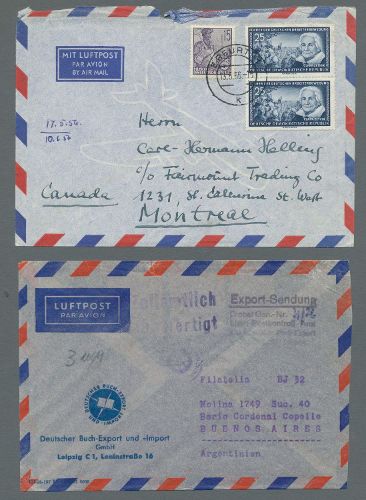 MIT LUFTPOST
PAR AVION
BY AIR MAIL
15
25
DEUTSCHE DEMOKRATISCHE REPUBLIK
25
DEUTSCHE DEMOKRATISCHE REPUBLIK
ERFURT
K
17.5.56.
Herrn
Carl-Hermann Helling
c/o Fairmount Trading Co
1231, St. Catherine St. West
Montreal
Canada
LUFTPOST
PAR AVION
Zollamtlich
Export-Sendung
3
DEUTSCHER BUCH-EXPORT
Deutscher Buch-Export und -Import
GmbH
Leipzig C 1, Leninstraße 16
Filatelia BJ 32
Molina 1749 Suc. 40
Bario Cardenal Copello
BUENOS AIRES
Argentinien